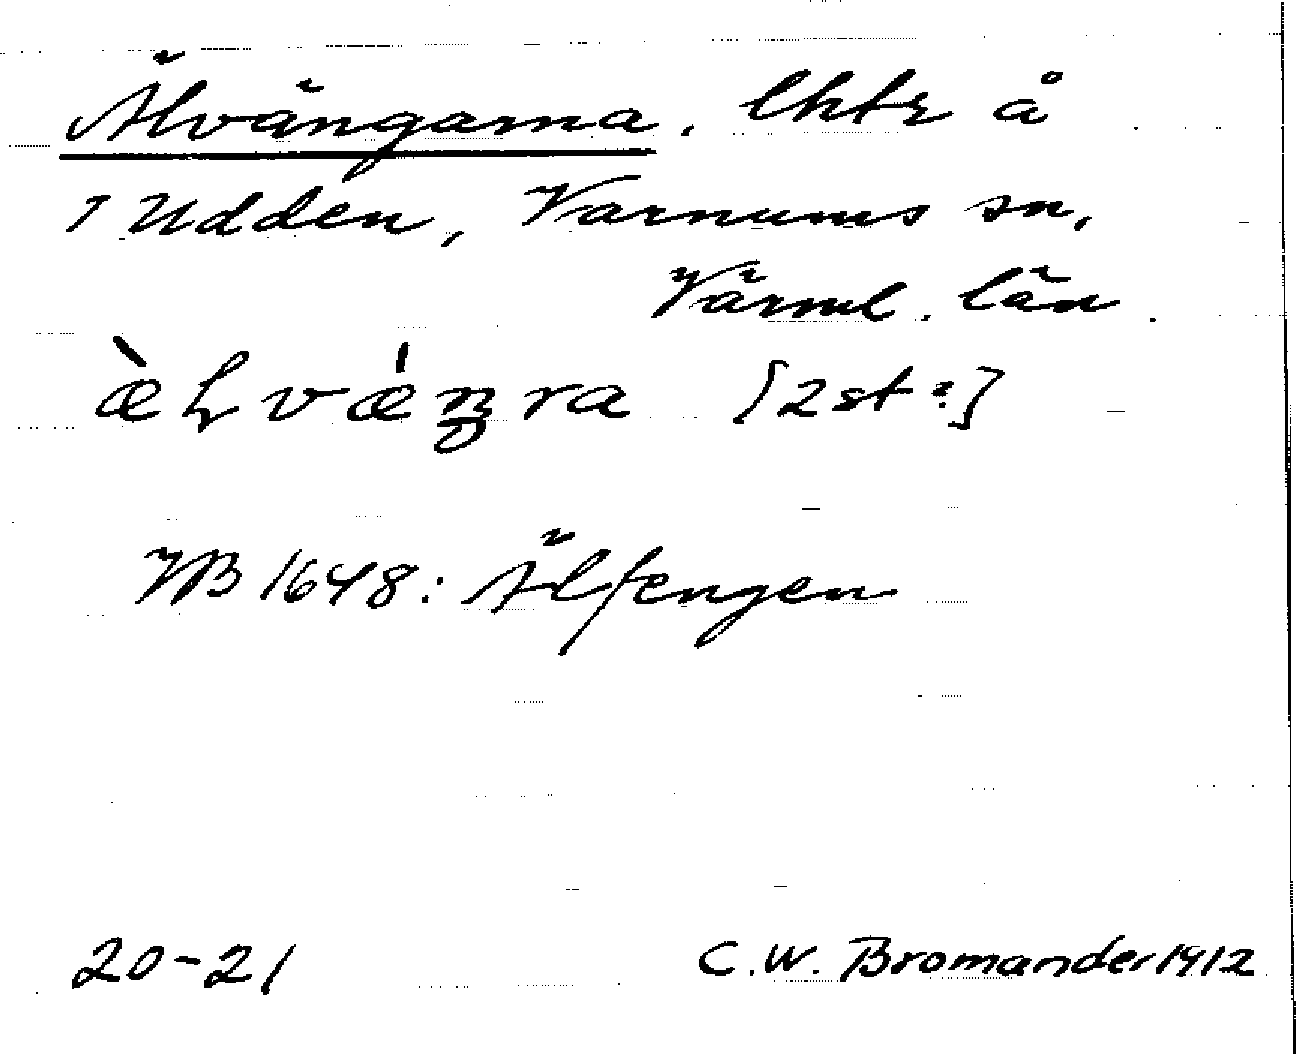 Älvängarna. lhtr å
1 Udden, Varnums sn,
Värml. län.
[2 st:]
JB 1648: Älfengen
20-21
C.W. Bromander 1912